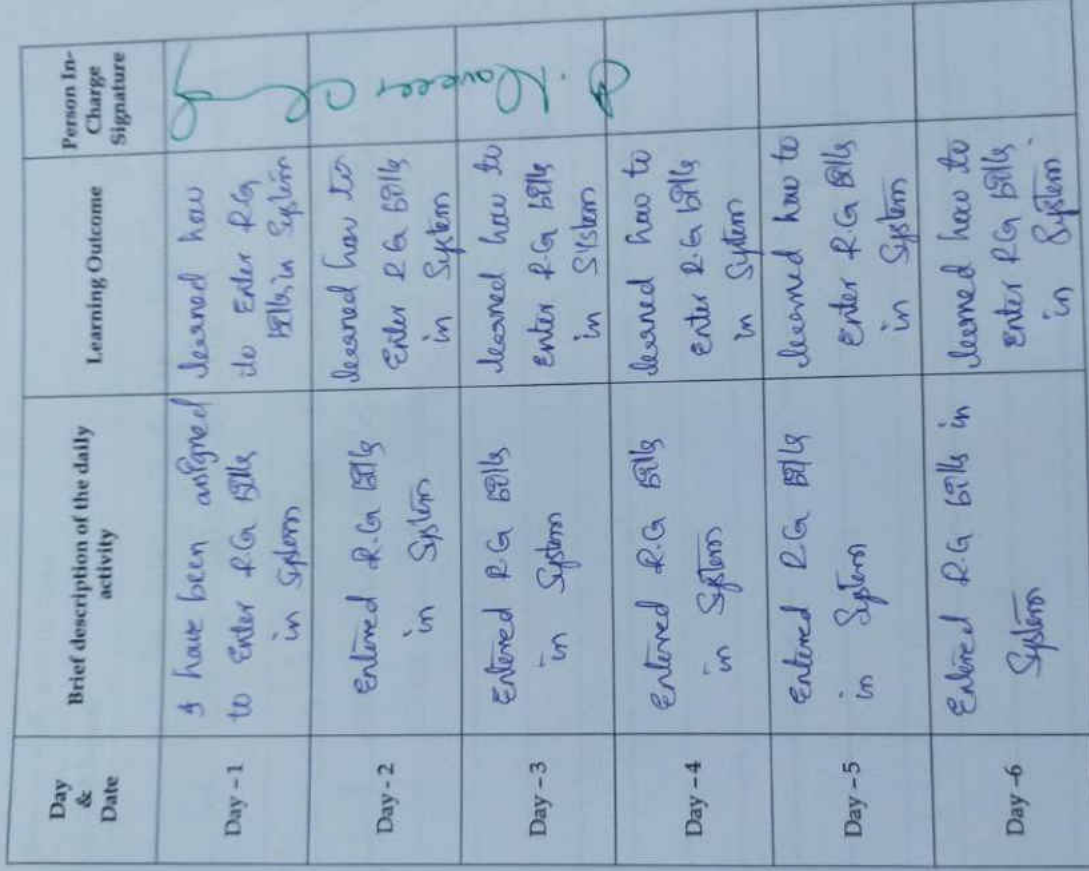 Day
&
Date
Brief description of the daily
activity
Learning Outcome
Person In-
Charge
Signature
Day - 1
I have been assigned
to Enter R.G Bills
in System
learned how
to Enter R.G
Bills in System
Day - 2
Entered R.G Bills
in System
learned how to
Enter R.G Bills
in System
Day - 3
Entered R.G Bills
in System
learned how to
Enter R.G Bills
in SIStem
Day - 4
Entered R.G Bills
in System
learned how to
Enter R.G Bills
in System
Day - 5
Entered R.G Bills
in System
learned how to
Enter R.G Bills
in System
Day -6
Entered R.G Bills in
System
learned how to
Enter R.G Bills
in System.